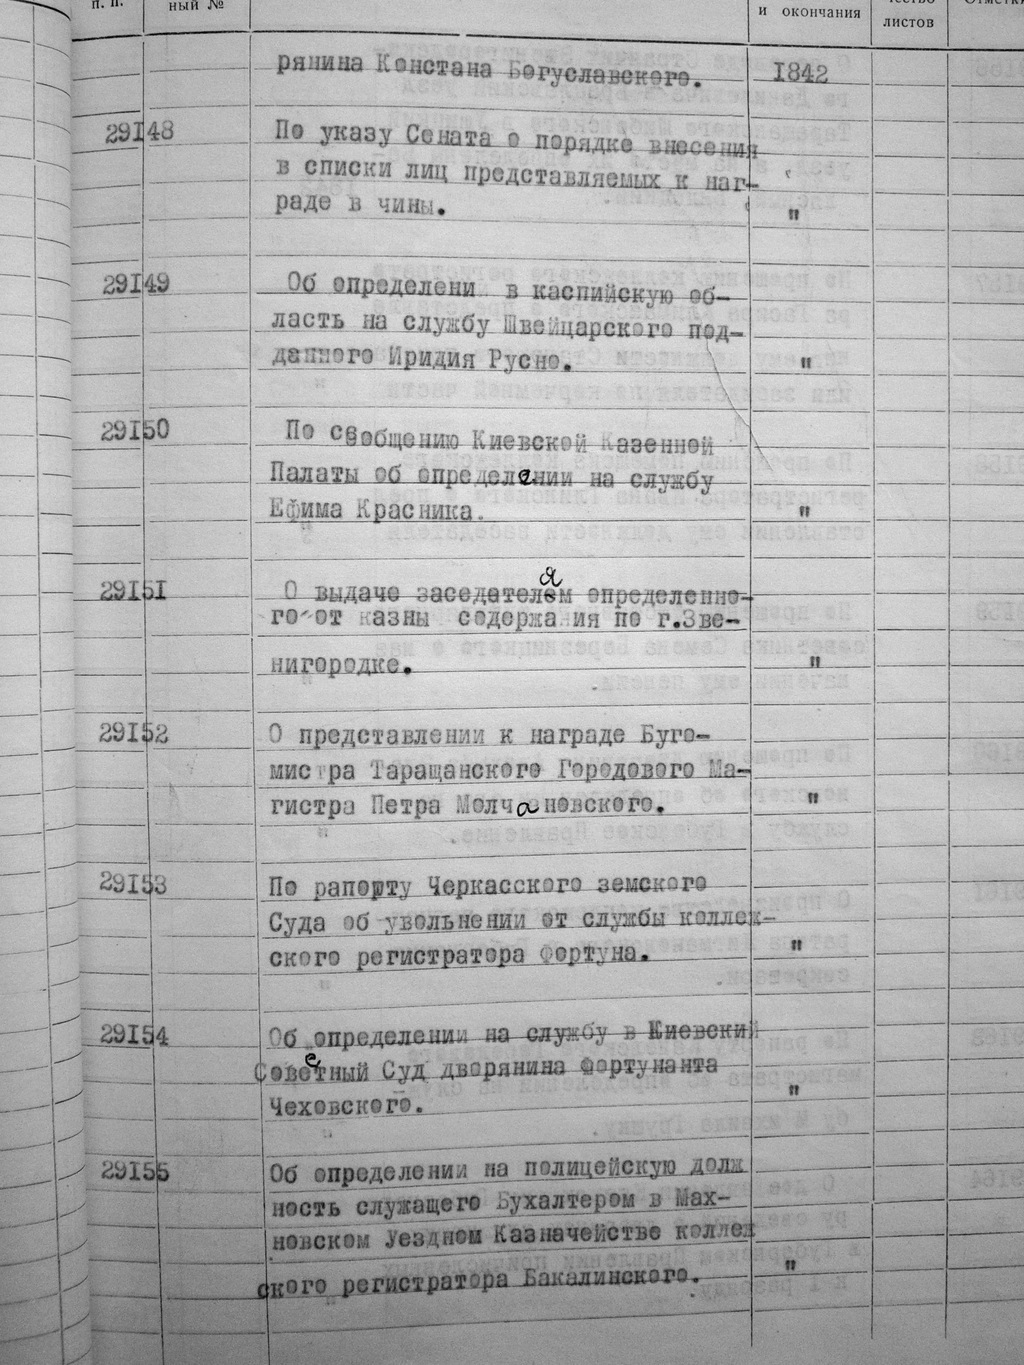 п. п.
ный №
и окончания
чество
листов
Отметки
рянина Констана Богуславского. 1842
29148 По указу Сената о порядке внесения
в списки лиц представляемых к наг-
раде в чины. "
29149 Об определени в каспийскую об-
ласть на службу Швейцарского под-
данного Иридия Русно. "
29150 По сообщению Киевской Казенной
Палаты об определении на службу
Ефима Красника. "
29151 О выдаче заседателям определенно-
го от казны содержания по г.Зве-
нигородке. "
29152 О представлении к награде Буго-
мистра Таращанского Городового Ма-
гистра Петра Молчановского. "
29153 По рапорту Черкасского земского
Суда об увольнении от службы коллеж-
ского регистратора Фортуна. "
29154 Об определении на службу в Киевский
Советный Суд дворянина Фортунанта
Чеховского. "
29155 Об определении на полицейскую долж
ность служащего Бухалтером в Мах-
новском Уездном Казначействе коллеж
ского регистратора Бакалинского. "